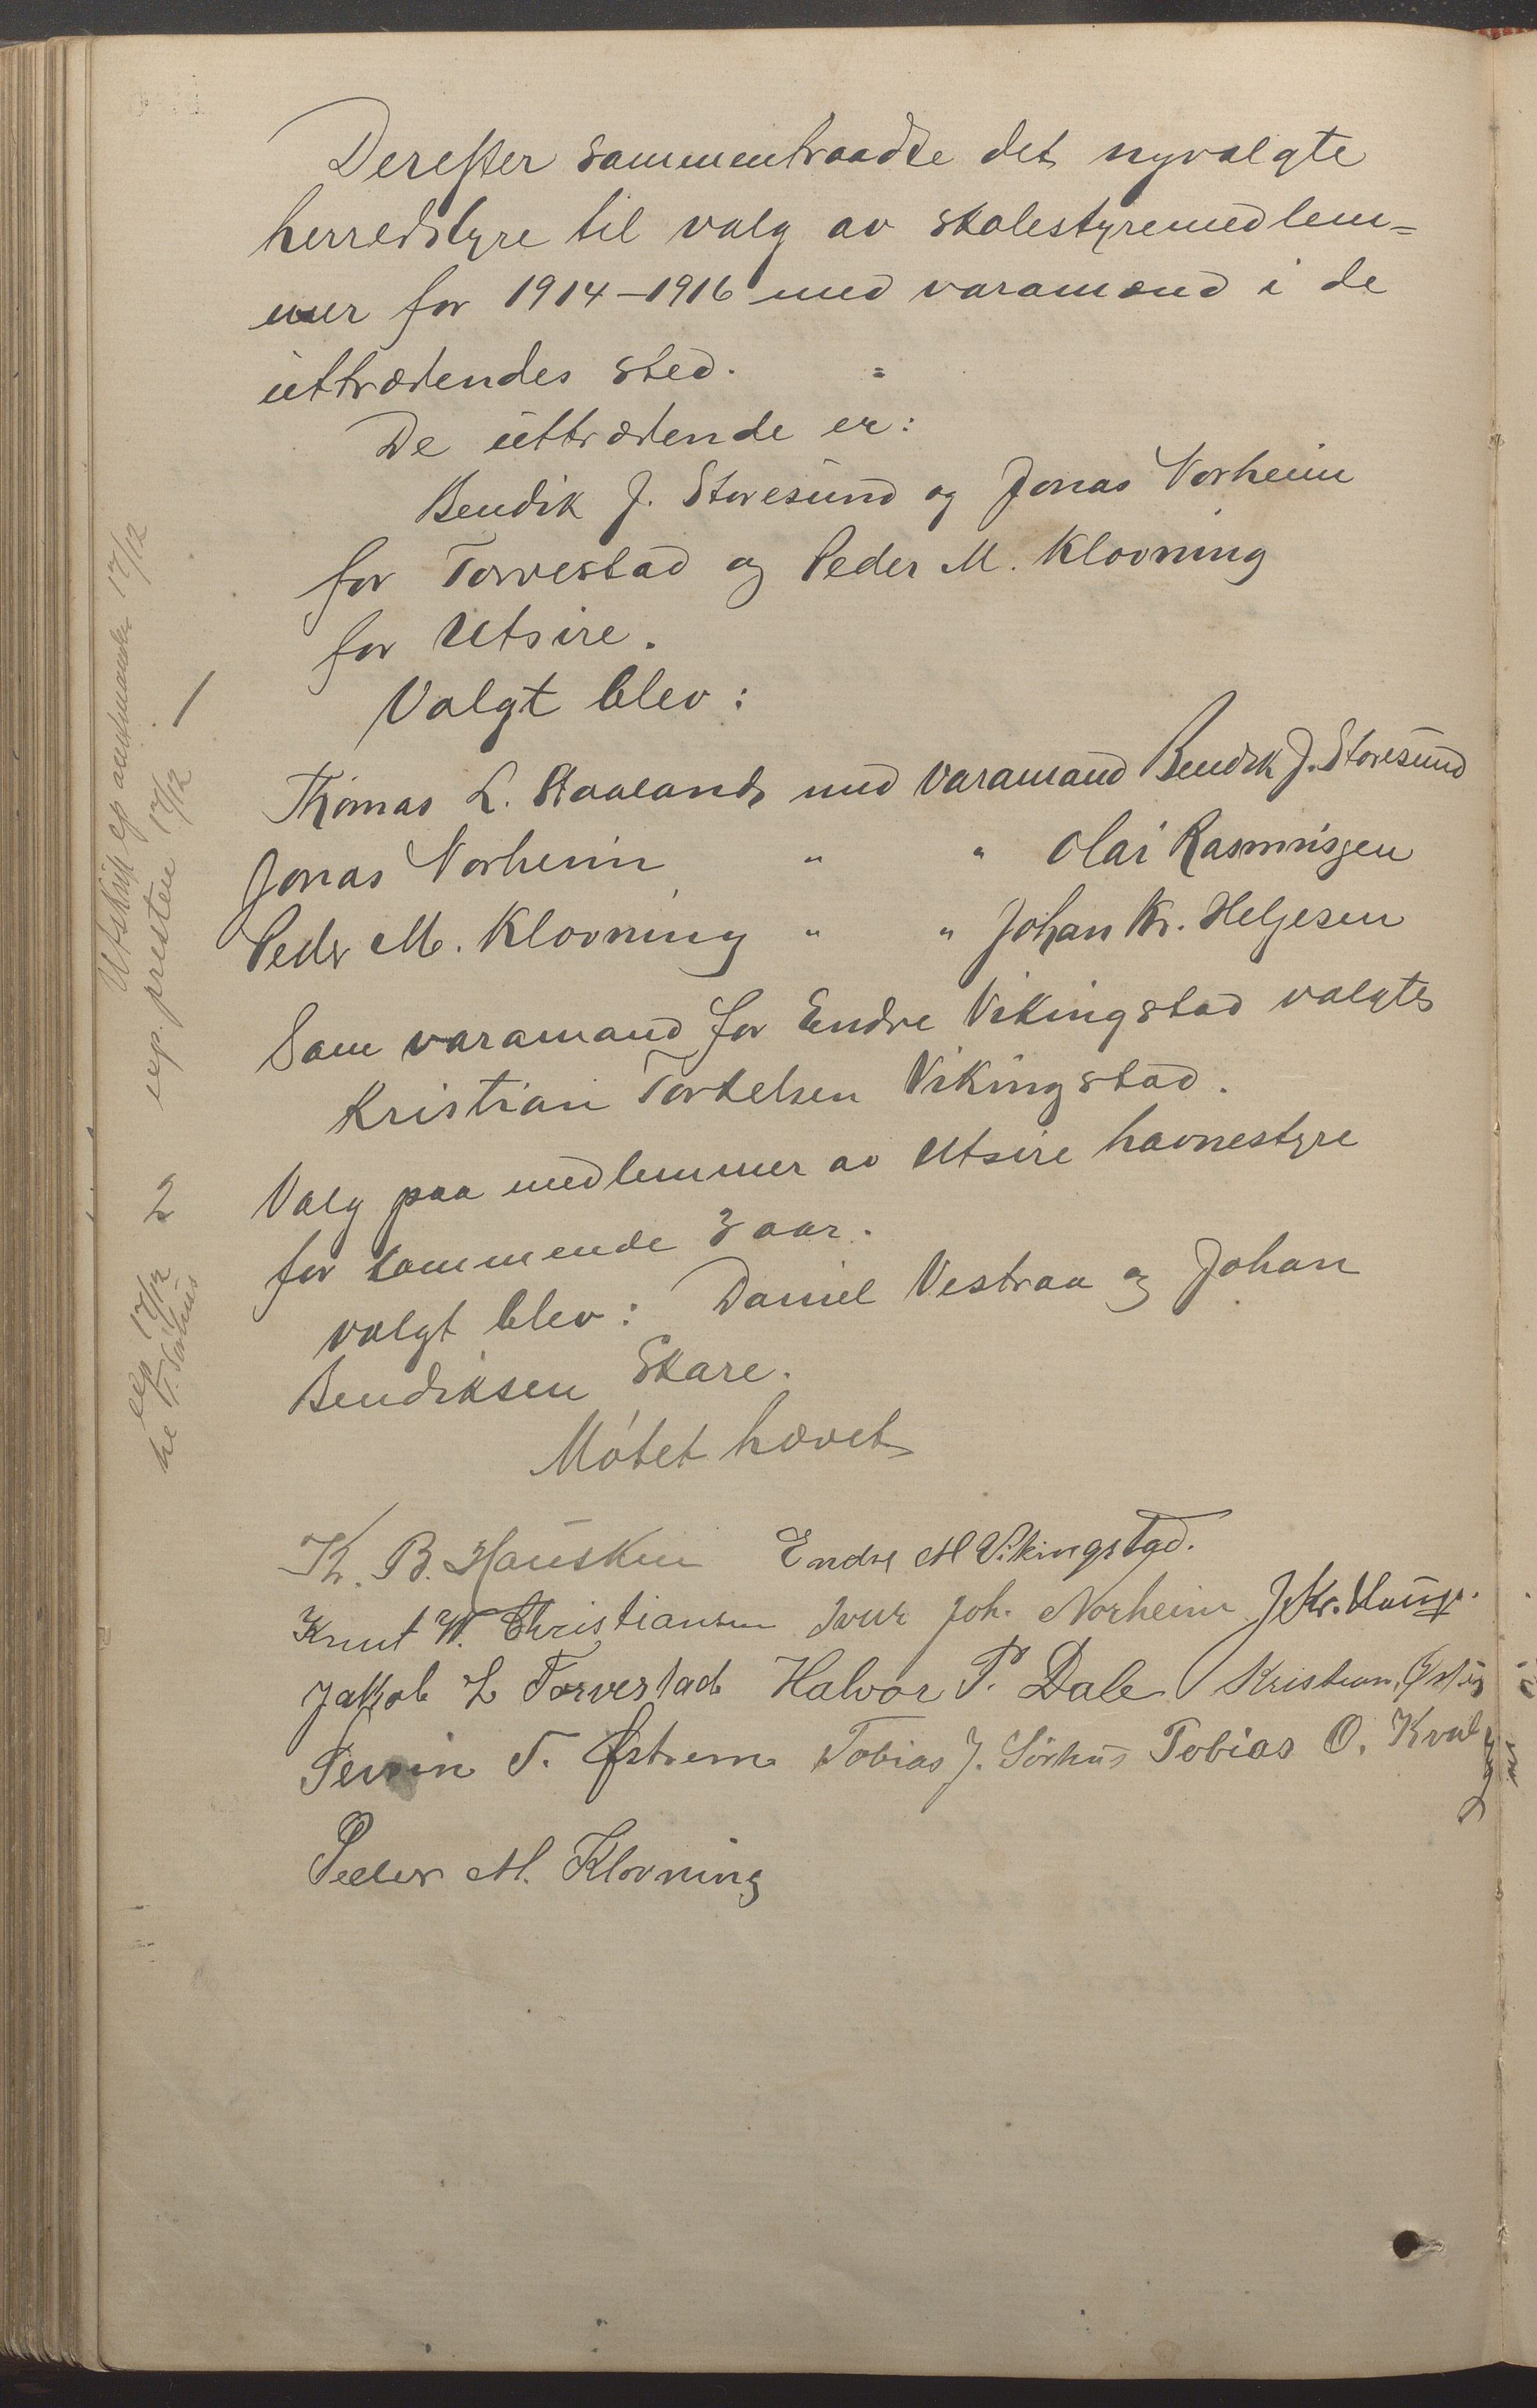 Derefter sammentraadte det nyvalgte
herredstyre til valg av skolestyremedlem=
mer for 1914-1916 med varamænd i de
uttrædendes sted.
De uttrædende er:
Bendik J. Storesund og Jonas Norheim
for Torvestad og Peder M. Klovning
for Utsire.
1
Valgt blev:
Thomas L. Staaland med varamand Bendik J. Storesund
Jonas Norheim " " Olai Rasmussen
Peder M. Klovning " " Johan Kr. Helgesen
Som varamand for Endre Vikingstad valgtes
Kristian Torkelsen Vikingstad.
2
Valg paa medlemmer av Utsire havnestyre
for kommende 3 aar.
valgt blev: Daniel Vestraa og Johan
Bendiksen Skare.
Møtet hævet
K. B. Hausken Endre M Vikingstad.
Knut W. Christiansen Iver Joh. Norheim J. Kr. Hauge.
Jakob L Torvestad Halvor P. Dale Kristian
T. Østrem Tobias J. Sörhus Tobias O. Kval
Peder M. Klovning
Utskrift 17/12
exp. presten 17/12
exp 17/12